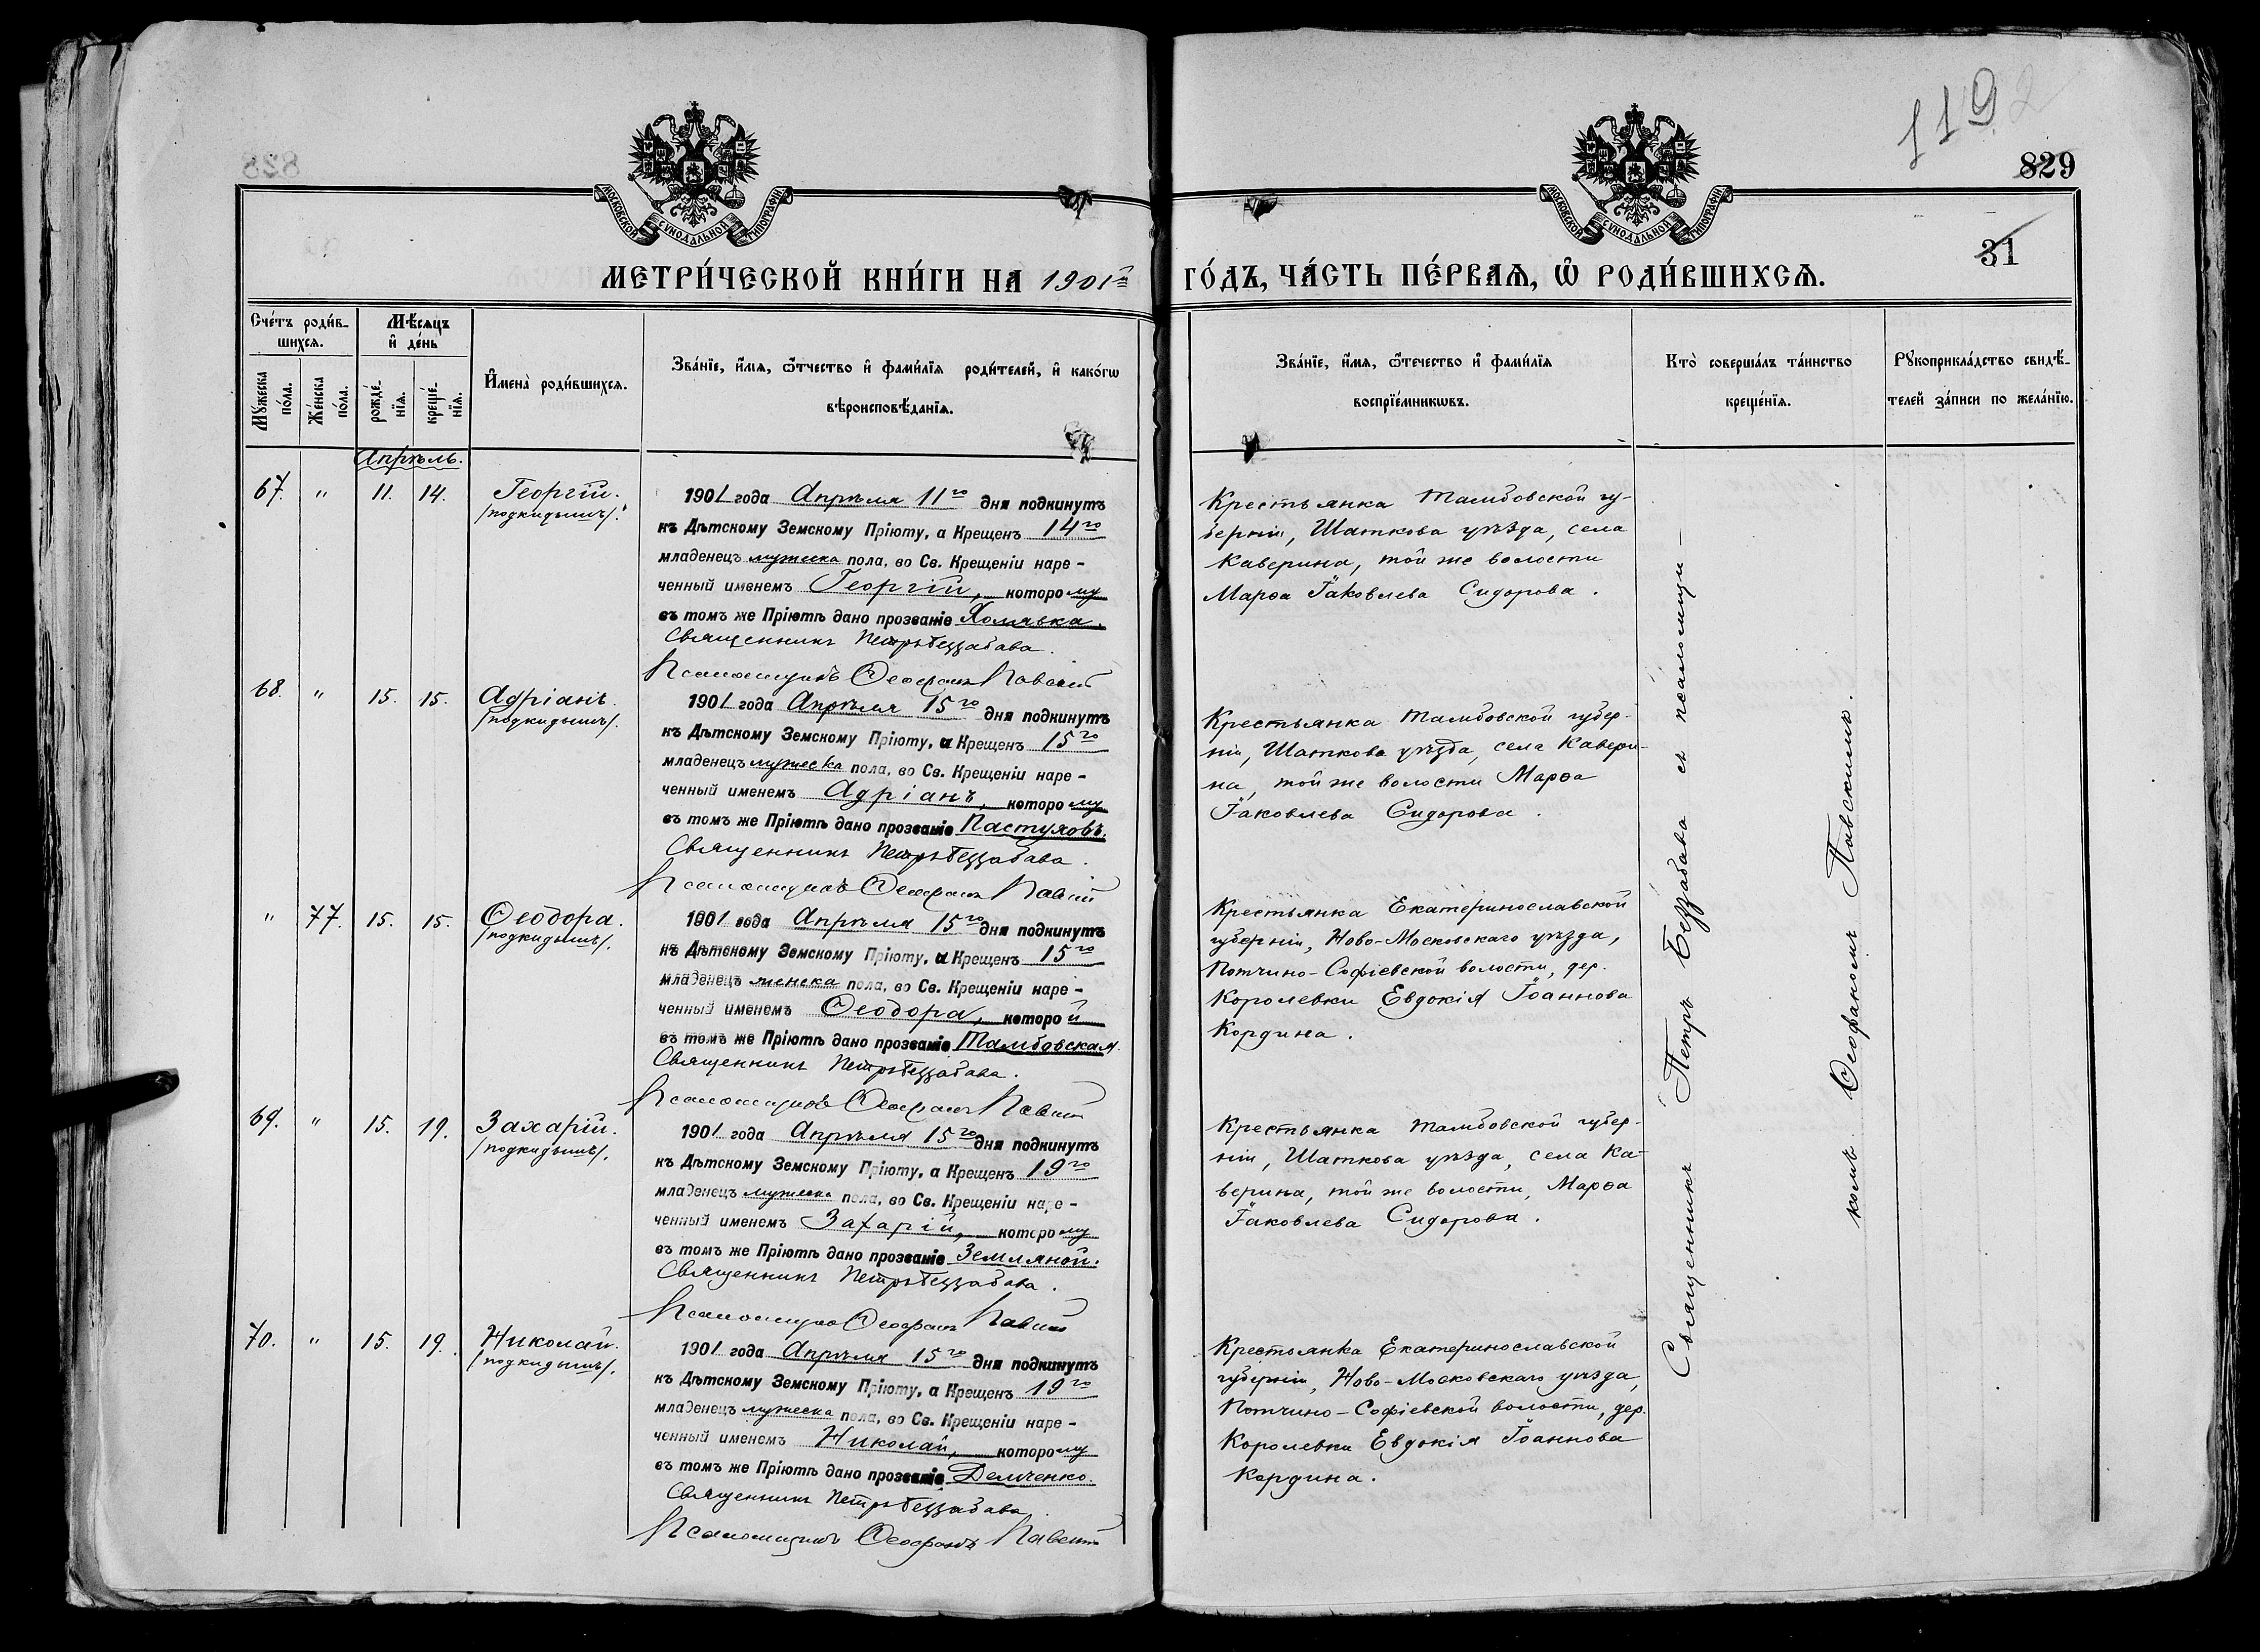 119
829
31
МОСКОВСКОЙ СѴНОДАЛЬНОЙ ТИПОГРАФІИ
МОСКОВСКОЙ СѴНОДАЛЬНОЙ ТИПОГРАФІИ
МЕТРИ́ЧЕСКОЙ КНИ́ГИ НА 1901й ГО́ДЪ, ЧА́СТЬ ПЕ́РВАѦ, Ѡ҆ РОДИ́ВШИХСѦ.
Сче́тъ роди́в-
шихсѧ.
Мꙋ́жеска по́ла.
Же́нска по́ла.
Мѣ́сѧцъ
и҆ де́нь
рожде́-
нїѧ.
креще́-
нїѧ.
И҆мена̀ роди́вшихсѧ.
Зва́нїе, и҆́мѧ, ѻ҆́тчество и҆ фами́лїѧ роди́телей, и҆ како́гѡ
вѣроисповѣ́данїѧ.
Зва́нїе, и҆́мѧ, ѻ҆́течество и҆ фами́лїѧ
воспрїе́мникѡвъ.
Кто̀ соверша́лъ та́инство
креще́нїѧ.
Рꙋкоприкла́дство свидѣ́-
телей за́писи по жела́нїю.
Апрѣль.
67. " 11. 14. Георгій.
/подкидышъ/.
1901 года Апрѣля 11го дня подкинутъ
къ Дѣтскому Земскому Пріюту, а Крещенъ 14го
младенецъ мужеска пола, во Св. Крещеніи наре-
ченный именемъ Георгій, которому
въ томъ же Пріютѣ дано прозваніе Холявка.
Священникъ Петръ Беззабава.
Псаломщикъ Ѳеофанъ Павскій
Крестьянка Тамбовской гу-
берніи, Шаткова уѣзда, села
Каверина, той же волости
Марѳа Іаковлева Сидорова.
68. " 15. 15. Адріанъ.
/подкидышъ/.
1901 года Апрѣля 15го дня подкинутъ
къ Дѣтскому Земскому Пріюту, а Крещенъ 15го
младенецъ мужеска пола, во Св. Крещеніи наре-
ченный именемъ Адріанъ, которому
въ томъ же Пріютѣ дано прозваніе Пастуховъ.
Священникъ Петръ Беззабава.
Псаломщикъ Ѳеофанъ Павскій
Крестьянка Тамбовской губер-
ніи, Шаткова уѣзда, села Кавери-
на, той же волости Марѳа
Іаковлева Сидорова.
" 77. 15. 15. Ѳеодора.
/подкидышъ/.
1901 года Апрѣля 15го дня подкинутъ
къ Дѣтскому Земскому Пріюту, а Крещенъ 15го
младенецъ женска пола, во Св. Крещеніи наре-
ченный именемъ Ѳеодора, которой
въ томъ же Пріютѣ дано прозваніе Тамбовская.
Священникъ Петръ Беззабава.
Псаломщикъ Ѳеофанъ Павскій
Крестьянка Екатеринославской
губерніи, Ново-Московскаго уѣзда,
Попчино-Софіевской волости, дер.
Королевки Евдокія Іоаннова
Кордина.
69. " 15. 19. Захарій.
/подкидышъ/.
1901 года Апрѣля 15го дня подкинутъ
къ Дѣтскому Земскому Пріюту, а Крещенъ 19го
младенецъ мужеска пола, во Св. Крещеніи наре-
ченный именемъ Захарій, которому
въ томъ же Пріютѣ дано прозваніе Земляной.
Священникъ Петръ Беззабава.
Псаломщикъ Ѳеофанъ Павскій
Крестьянка Тамбовской губер-
ніи, Шаткова уѣзда, села Ка-
верина, той же волости, Марѳа
Іаковлева Сидорова.
70. " 15. 19. Николай.
/подкидышъ/.
1901 года Апрѣля 15го дня подкинутъ
къ Дѣтскому Земскому Пріюту, а Крещенъ 19го
младенецъ мужеска пола, во Св. Крещеніи наре-
ченный именемъ Николай, которому
въ томъ же Пріютѣ дано прозваніе Демченко.
Священникъ Петръ Беззабава
Псаломщикъ Ѳеофанъ Павскій
Крестьянка Екатеринославской
губерніи, Ново-Московскаго уѣзда,
Попчино-Софіевской волости, дер.
Королевки Евдокія Іоаннова
Кордина.
Священникъ Петръ Беззабава съ псаломщи-
комъ Ѳеофаномъ Павскимъ.